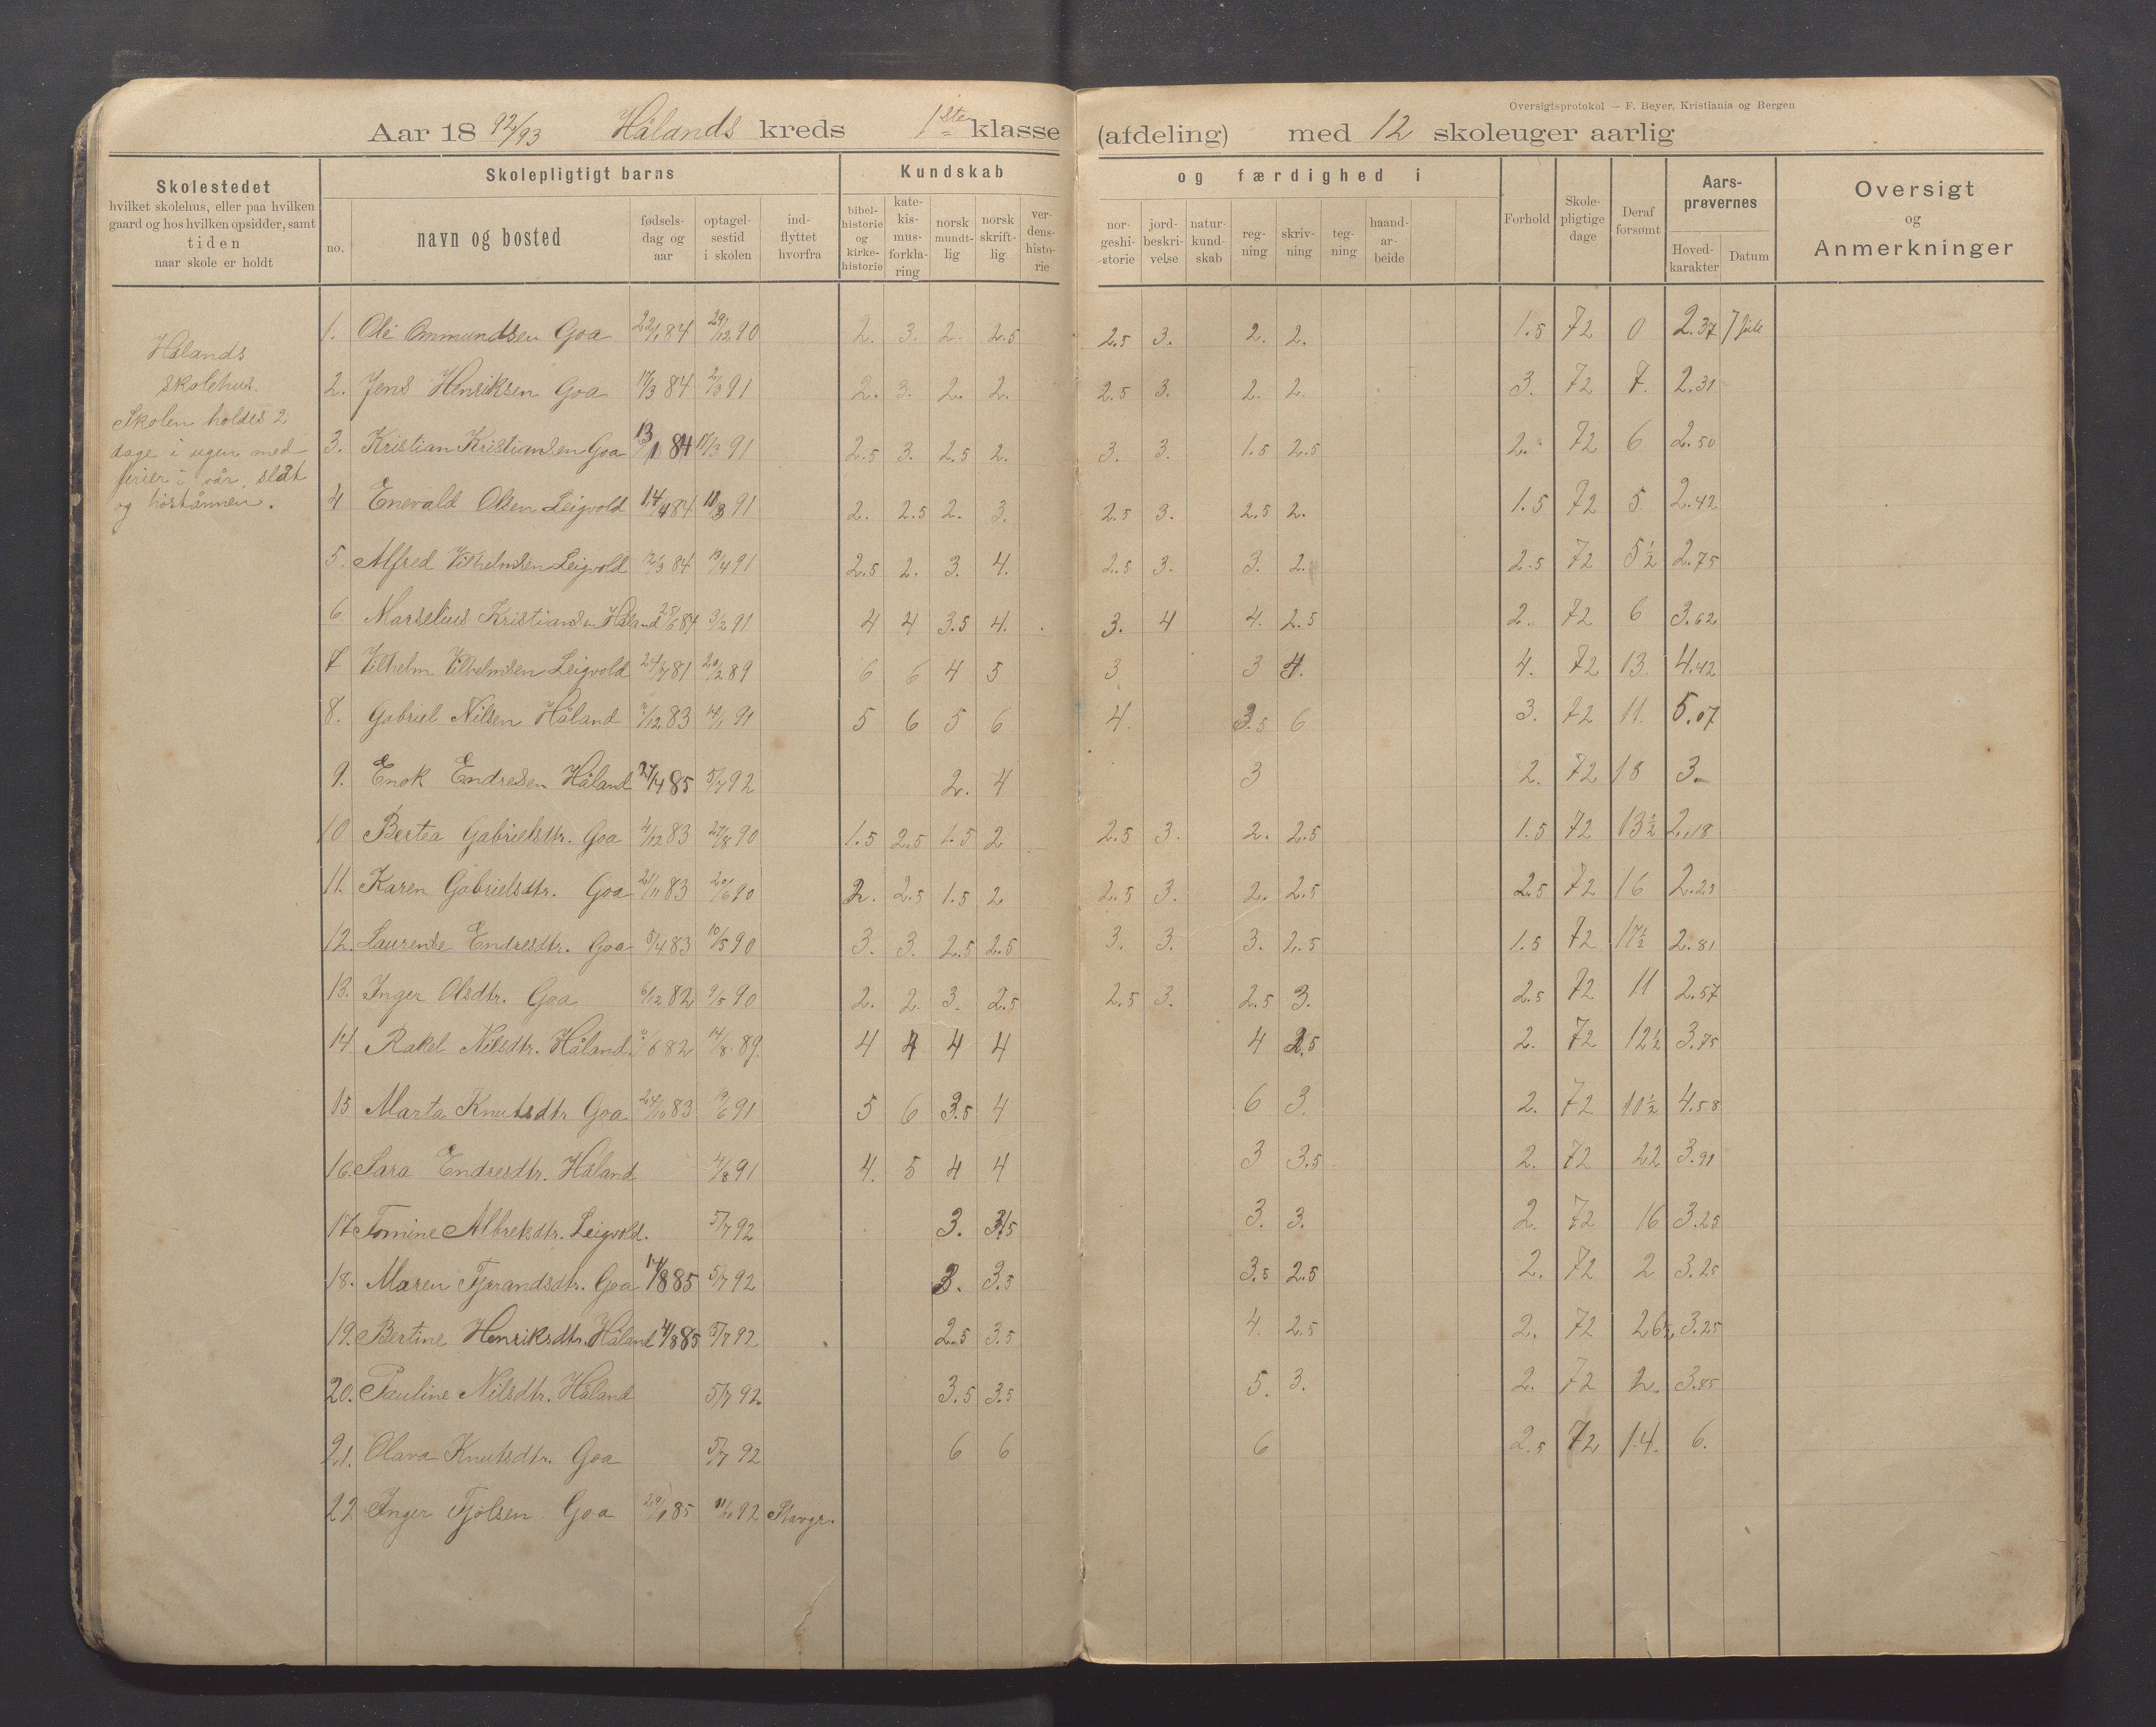 Oversigtsprotokol — F. Beyer, Kristiania og Bergen
Aar 18 92/93 Hålands kreds 1ste klasse (afdeling) med 12 skoleuger aarlig
Skolestedet
hvilket skolehus, eller paa hvilken
gaard og hos hvilken opsidder, samt
tiden
naar skole er holdt
Skolepligtigt barns
no.
navn og bosted
fødsels-
dag og
aar
optagel-
sestid
i skolen
ind-
flyttet
hvorfra
Kundskab
bibel-
historie
og
kirke-
historie
kate-
kis-
mus-
forkla-
ring
norsk
mundt-
lig
norsk
skrift-
lig
ver-
dens-
histo-
rie
og færdighed i
nor-
geshi-
storie
jord-
beskri-
velse
natur-
kund-
skab
reg-
ning
skriv-
ning
teg-
ning
haand-
ar-
beide
Forhold
Skole-
pligtige
dage
Deraf
forsømt
Aars-
prøvernes
Hoved-
karakter
Datum
Oversigt
og
Anmerkninger
Hålands
skolehus.
Skolen holdes 2
dage i ugen med
ferier i vår, slåt
og høstånnen.
1. Ole Ommundsen Goa 22/1 84 29/12 90 2. 3. 2. 2.5 2.5 3. 2. 2. 1.5 72 0 2.37
2. Jens Henriksen Goa 17/3 84 2/3 91 2. 3. 2. 2. 2.5 3. 2. 2. 3. 72 7. 2.31
3. Kristian Kristiansen Goa 84 17/3 91 2.5 3. 2.5 2. 3. 3. 1.5 2.5 2. 72 6 2.50
4 Enevald Olsen Leigvold 14/4 84 91 2. 2.5 2. 3. 2.5 3. 2.5 2. 1.5 72 5 2.42
5. Alfred Vilhelmsen Leigvold 12/3 84 13/4 91 2.5 2. 3. 4. 2.5 3. 3. 2. 2.5 72 5½ 2.75
6 Marselius Kristiansen Håland 84 3/2 91 4 4 3.5 4. 3. 4 4. 2.5 2. 72 6 3.62
7 Vilhelm Vilhelmsen Leigvold 24/7 81 20/2 89 6 6 4 5 3 3 4. 4. 72 13 4.42
8. Gabriel Nilsen Håland 83 14/1 91 5 6 5 6 4. 3.5 6 3. 72 11. 5.07
9. Enok Endresen Håland 27/4 85 5/7 92 2. 4 3 2. 72 18 3.
10 Bertea Gabrielsdtr. Goa 4/12 83 27/8 90 1.5 2.5 1.5 2 2.5 3. 2. 2.5 1.5 72 13½ 2.18
11. Karen Gabrielsdtr. Goa 21/11 83 20/6 90 2. 2.5 1.5 2 2.5 3. 2. 2.5 2.5 72 16 2.25
12. Laurense Endresdtr. Goa 5/4 83 10/5 90 3. 3. 2.5 2.5 3. 3. 3. 2.5 1.5 72 17½ 2.81
13. Inger Olsdtr. Goa 6/12 82 9/5 90 2. 2. 3. 2.5 2.5 3. 2.5 3. 2.5 72 11 2.57
14. Rakel Nilsdtr. Håland 82 14/8 89. 4 4 4 4 4 2.5 2. 72 12½ 3.75
15 Marta Knutsdtr Goa 24/10 83 91 5 6 3.5 4 6 3. 2. 72 10½ 4.58
16. Sara Endresdtr. Håland 4/8 91 4. 5 4 4 3 3.5 2. 72 22 3.91
17. Tomine Albretsdtr. Leigvold. 5/7 92 3. 3.5 3. 3. 2. 72 16 3.25
18. Maren Tjerandsdtr. Goa 14/8 85 5/7 92 3. 3.5 3.5 2.5 2. 72 2 3.25
19. Bertine Henriksdtr. Håland 4/8 85 5/7 92 2.5 3.5 4. 2.5 2. 72 26 3.25
20. Pauline Nilsdtr. Håland 5/7 92. 3.5 3.5 5. 3. 2. 72 2. 3.75
21. Olava Knutsdtr. Goa 5/7 92 6 6 6 2.5 72 14. 6.
22 Inger Tjølsen Goa 85 92 Stavgr.